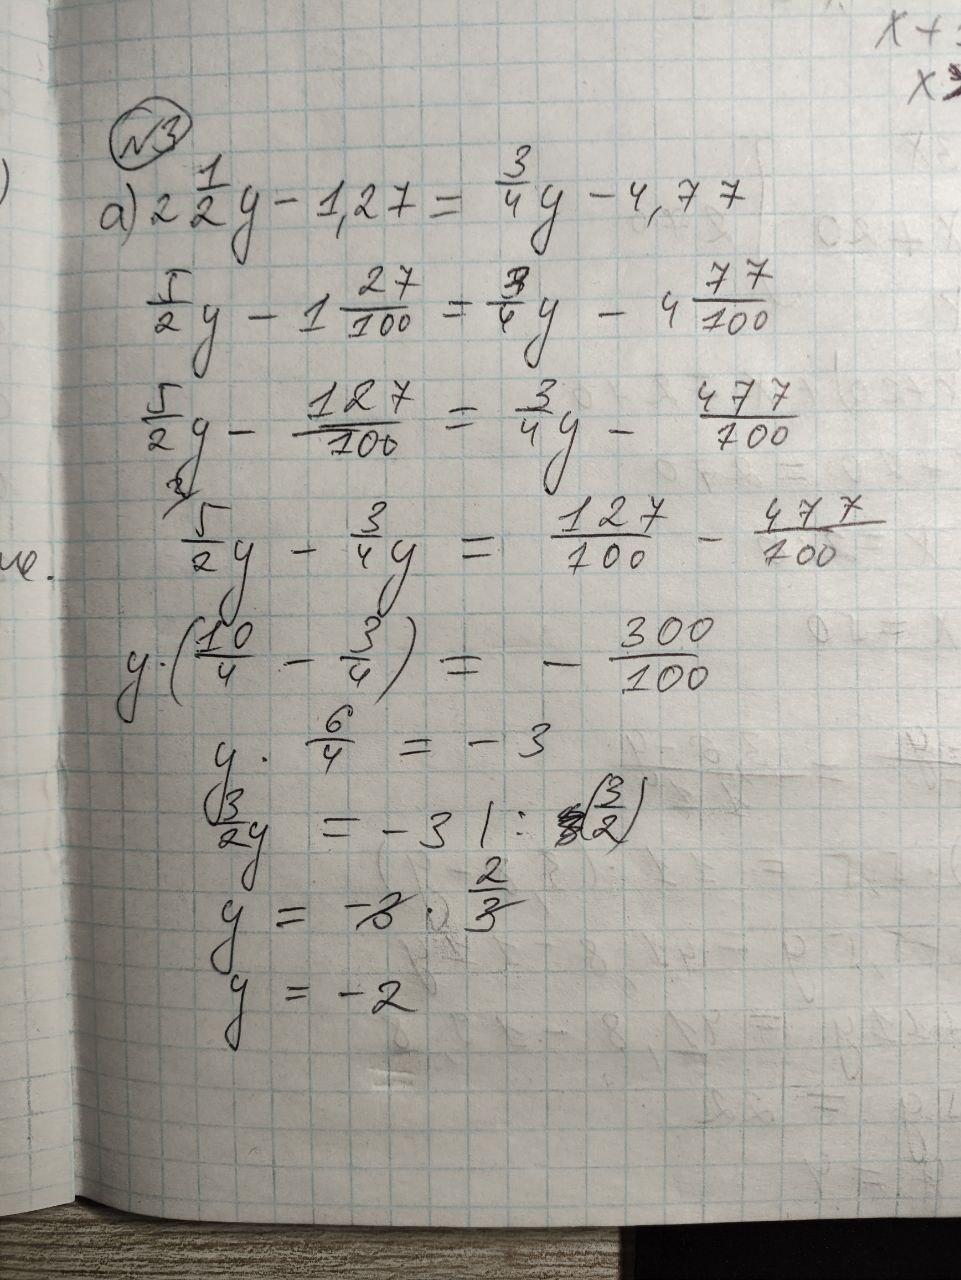 x +
x
№3
а) 2 1/2 y - 1,27 = 3/4 y - 4,77
5/2 y - 1 27/100 = 3/4 y - 4 77/100
5/2 y - 127/100 = 3/4 y - 477/100
5/2 y - 3/4 y = 127/100 - 477/100
y · (10/4 - 3/4) = - 300/100
y · 6/4 = - 3
3/2 y = - 3 | : (3/2)
y = -3 · 2/3
y = -2